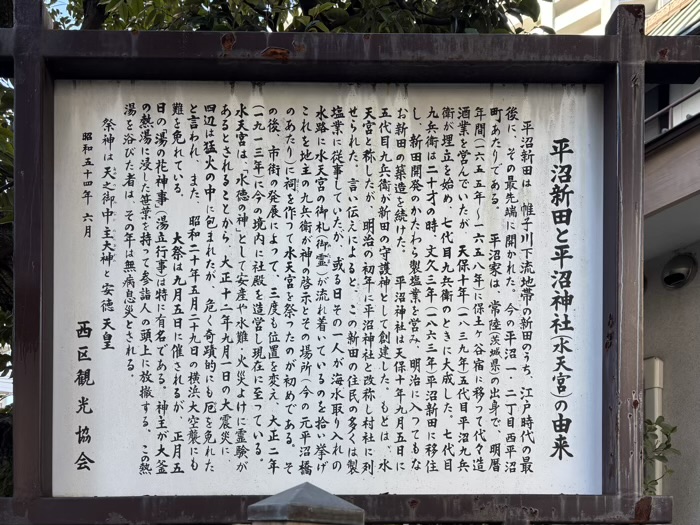 平沼新田と平沼神社(水天宮)の由来
平沼新田は、帷子川下流地帯の新田のうち、江戸時代の最
後に、その最先端に開かれた。今の平沼一、二丁目西平沼
町あたりである。 平沼家は、常陸(茨城県)の出身で、明暦
年間(一六五五年〜一六五八年)に保土ヶ谷宿に移って代々造
酒業を営んでいたが、天保十年(一八三九年)五代目平沼九兵
衛が埋立を始め、七代目九兵衛のときに大成した。七代目
九兵衛は二十才の時、文久三年(一八六三年)平沼新田に移住
し、新田開発のかたわら製塩業を営み、明治に入ってもな
お新田の築造を続けた。 平沼神社は天保十年九月五日に
五代目九兵衛が新田の守護神として創建した。もとは、水
天宮と称したが、明治の初年に平沼神社と改称し村社に列
せられた。言い伝えによると、この新田の住民の多くは製
塩業に従事していたが、或る日その一人が海水取り入れの
水路に水天宮の御札(御霊)が流れ着いているのを拾い挙げ
これを地主の九兵衛が神の啓示とその場所(今の元平沼橋
のあたり)に祠を作って水天宮を祭ったのが初めである。そ
の後、市街の発展によって、三度も位置を変え、大正二年
(一九一三年)に今の境内に社殿を造営し現在に至っている。
水天宮は、「水徳の神」として安産や水難・火災よけに霊験が
あるとされることから、大正十二年九月一日の大震災に、
四辺は猛火の中に包まれたが、危く奇蹟的にも厄を免れた
と言われ、また、昭和二十年五月二十九日の横浜大空襲にも
難を免れている。 大祭は九月五日に催されるが、正月五
日の湯の花神事(湯立行事)は特に有名である。神主が大釜
の熱湯に浸した笹葉を持って参詣人の頭上に放撒する。この熱
湯を浴びた者は、その年は無病息災とされる。
祭神は天之御中主大神と安徳天皇
昭和五十四年 六月
西区観光協会